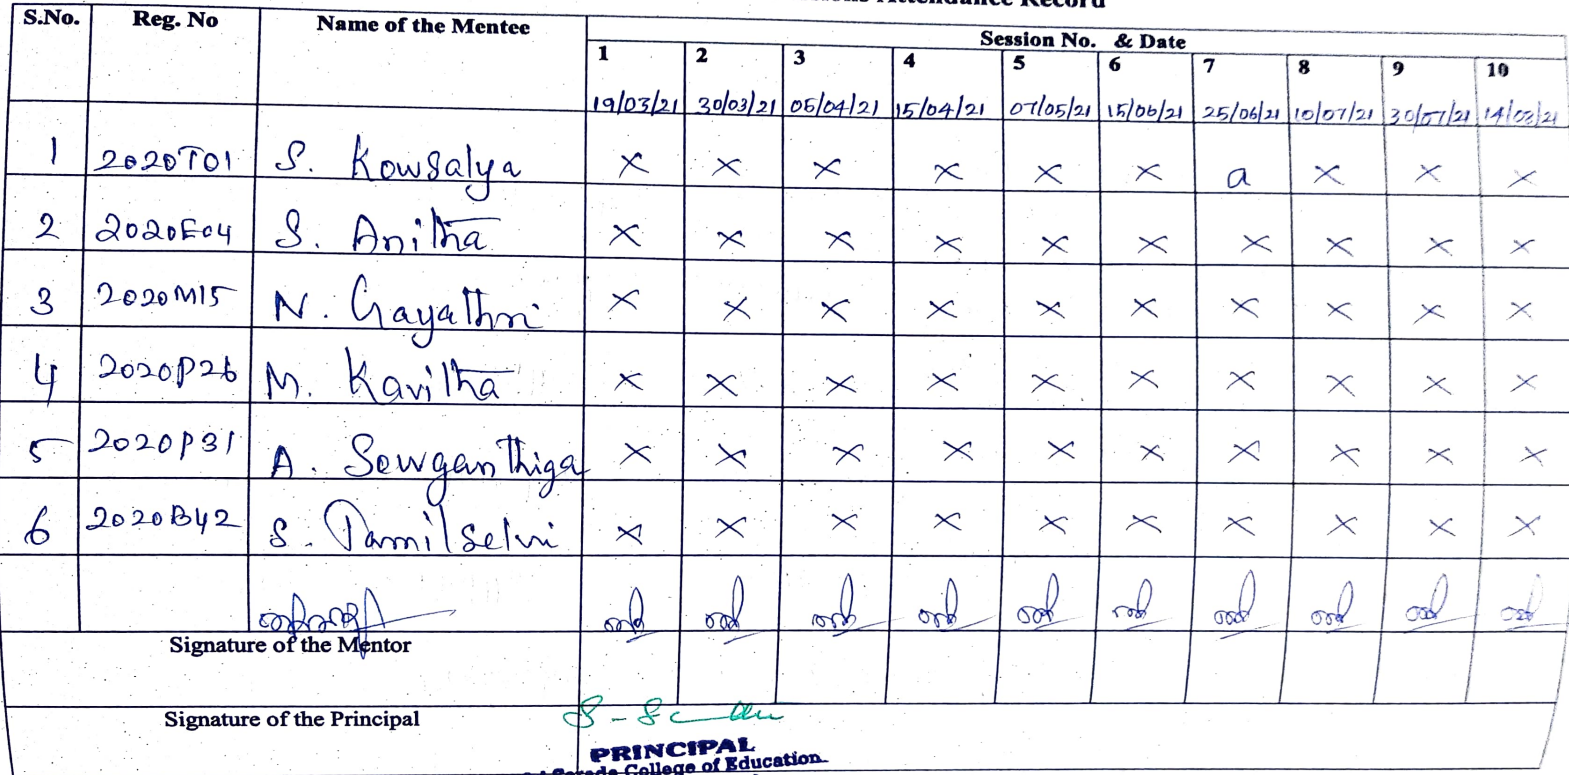 Attendance Record
S.No. Reg. No Name of the Mentee Session No. & Date
1 2 3 4 5 6 7 8 9 10
19/03/21 30/03/21 05/04/21 15/04/21 07/05/21 15/06/21 25/06/21 10/07/21 30/07/21 14/08/21
1 2020T01 S. Kowsalya × × × × × × a × × ×
2 2020E04 S. Anitha × × × × × × × × × ×
3 2020M15 N. Gayathri × × × × × × × × × ×
4 2020P26 M. Kavitha × × × × × × × × × ×
5 2020P31 A. Sowganthiga × × × × × × × × × ×
6 2020B42 S. Tamilselvi × × × × × × × × × ×
Signature of the Mentor
Signature of the Principal
PRINCIPAL
College of Education